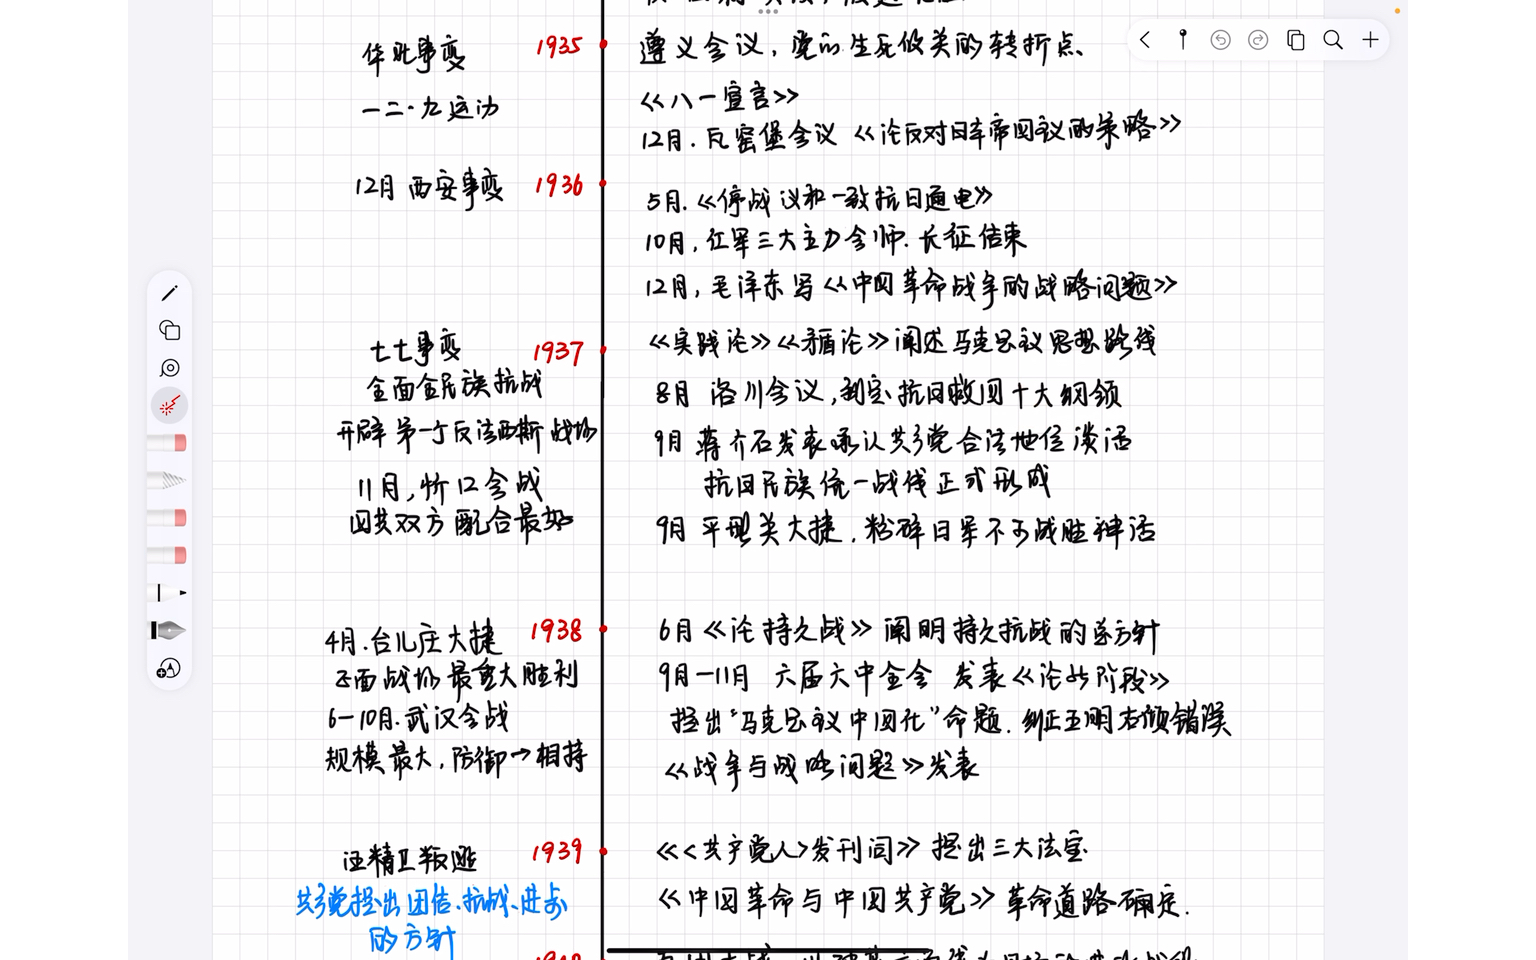 华北事变 1935 遵义会议，党的生死攸关的转折点、
一二·九运动 《八一宣言》
12月. 瓦窑堡会议 《论反对日本帝国主义的策略》
12月 西安事变 1936
5月. 《停战议和一致抗日通电》
10月, 红军三大主力会师. 长征结束
12月, 毛泽东写《中国革命战争的战略问题》
七七事变 1937 《实践论》《矛盾论》阐述马克思主义思想路线
全面全民族抗战 8月 洛川会议, 制定抗日救国十大纲领
开辟第一个反法西斯战场 9月 蒋介石发表承认共产党合法地位谈话
11月, 忻口会战 抗日民族统一战线正式形成
国共双方配合最好 9月 平型关大捷, 粉碎日军不可战胜神话
4月. 台儿庄大捷 1938 6月《论持久战》 阐明持久抗战的总方针
正面战场最重大胜利 9月-11月 六届六中全会 发表《论新阶段》
6-10月. 武汉会战 提出"马克思主义中国化"命题. 纠正王明右倾错误
规模最大, 防御→相持 《战争与战略问题》发表
汪精卫叛逃 1939 《<共产党人>发刊词》 提出三大法宝
共产党提出团结、抗战、进步 《中国革命与中国共产党》 革命道路确定.
的方针